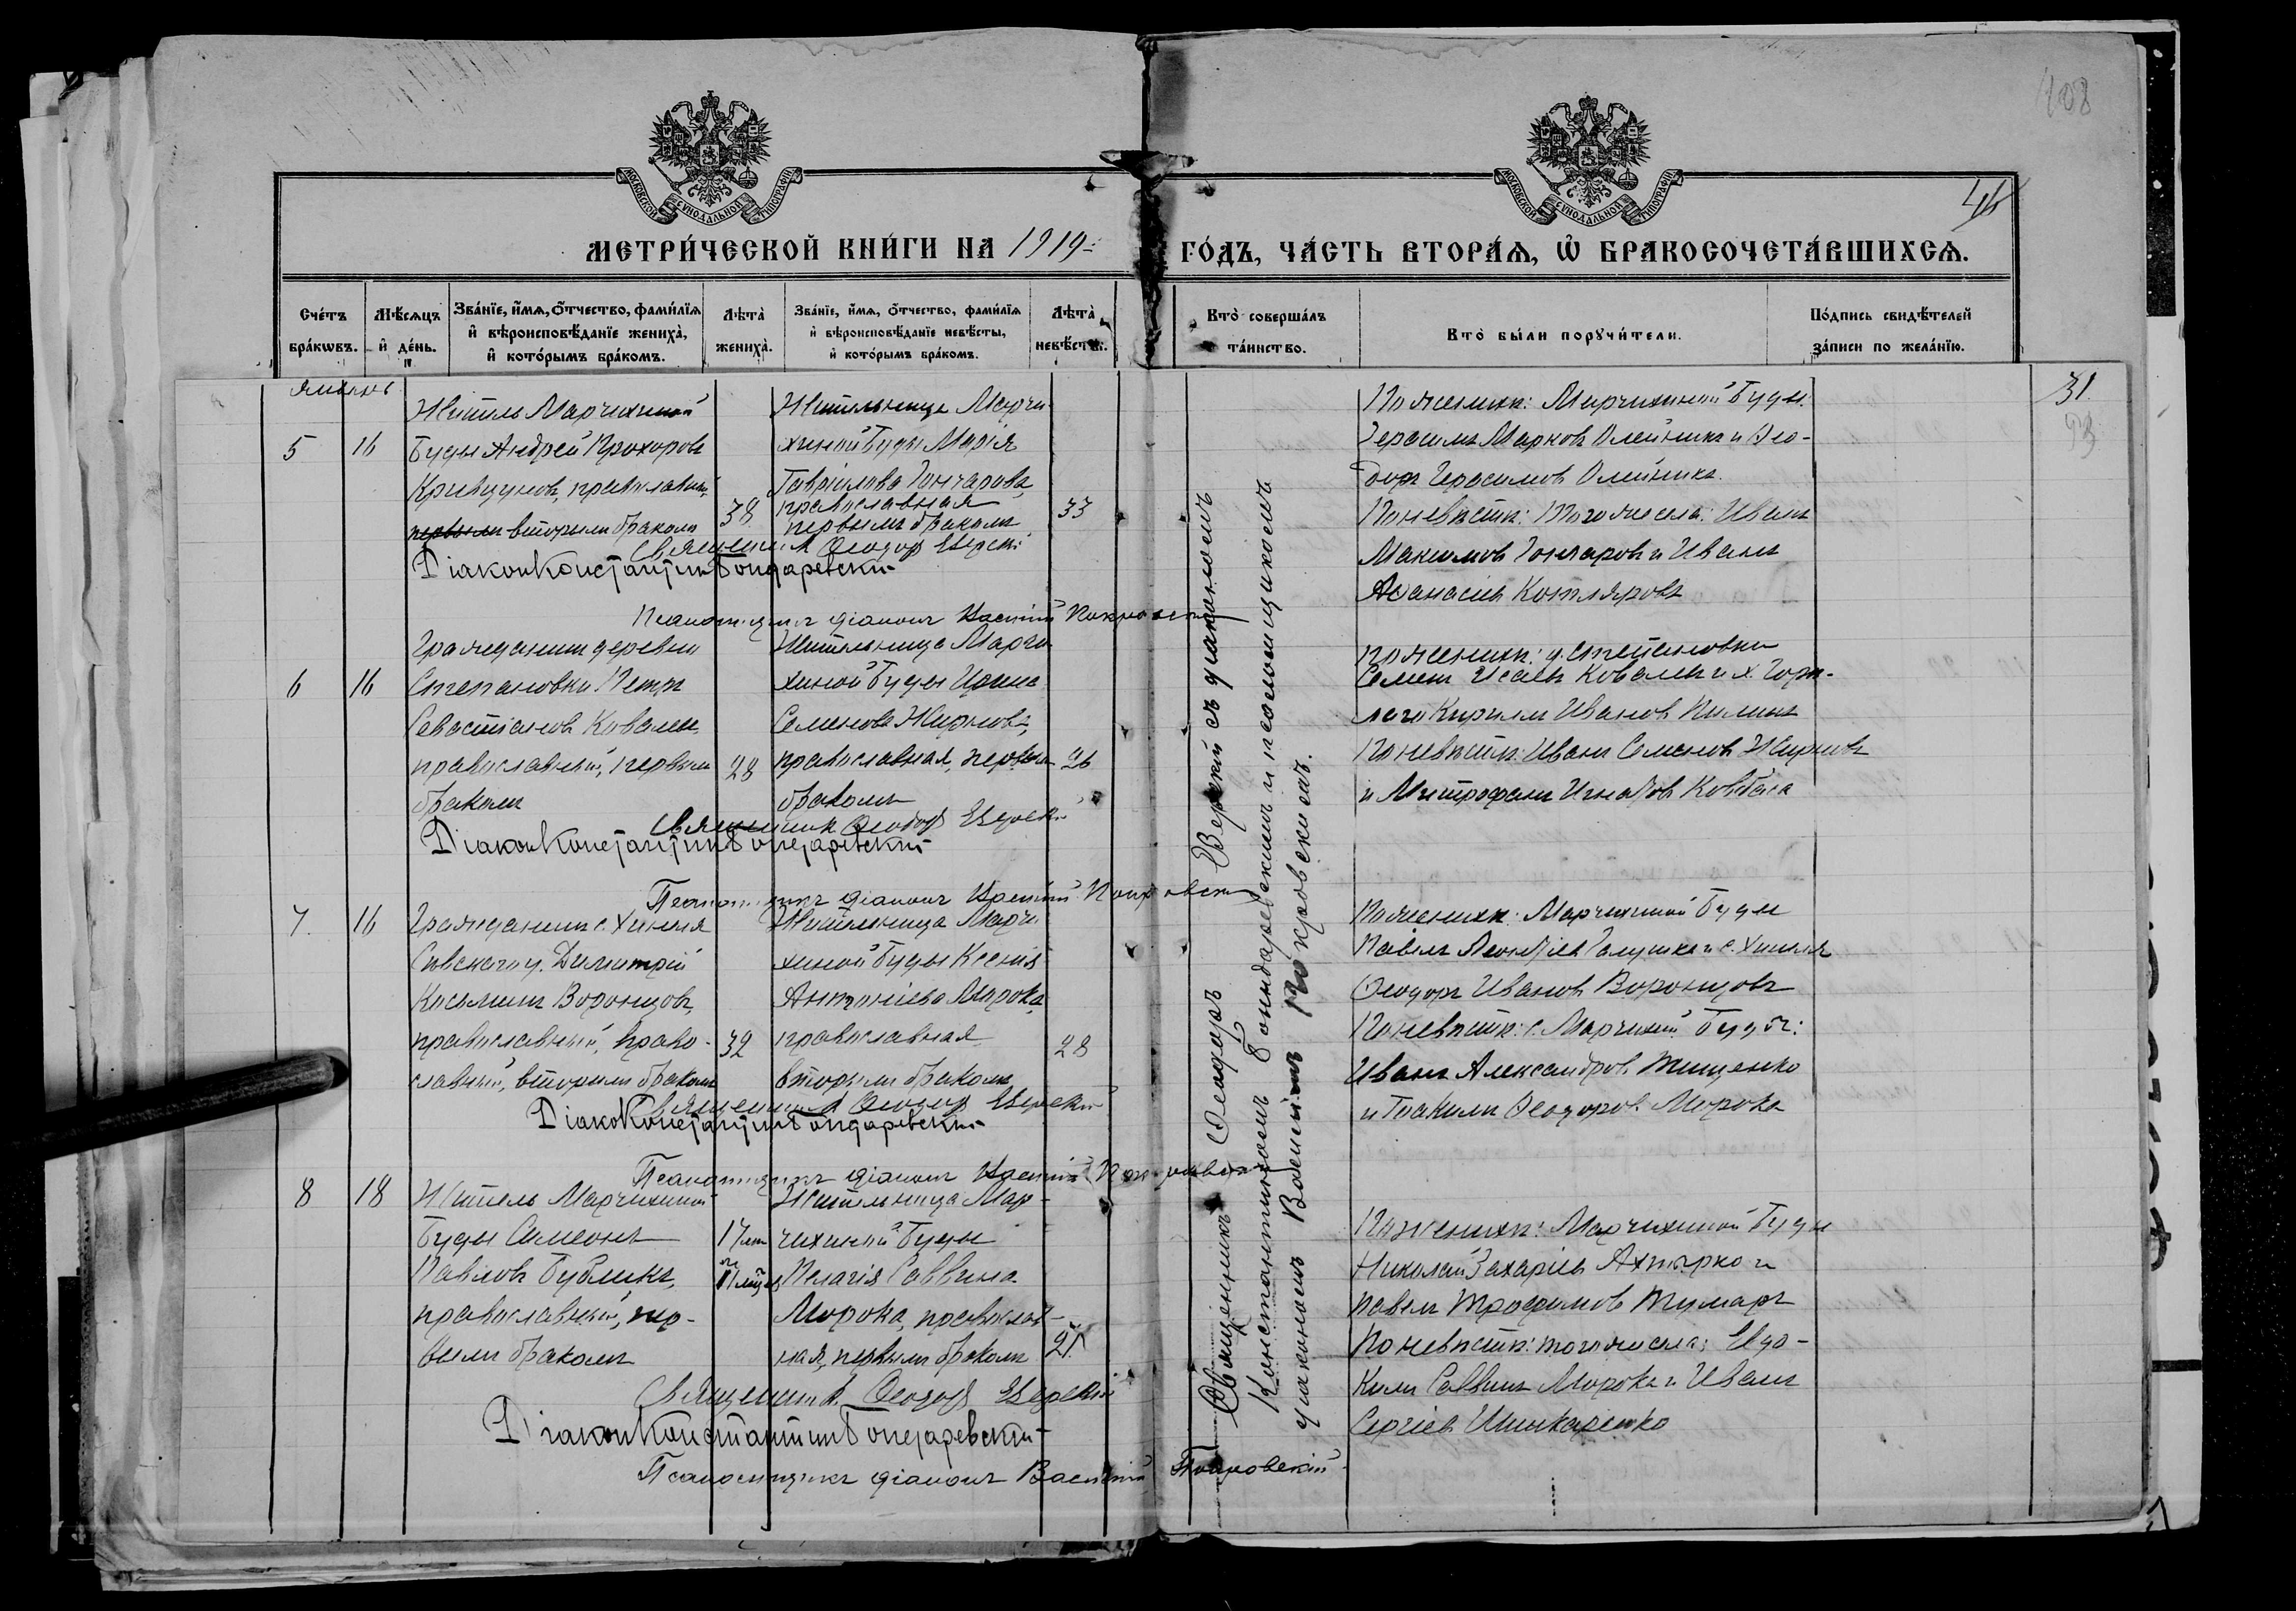 108
46
МОСКОВСКОЙ СУНОДАЛЬНОЙ ТИПОГРАФІИ
МОСКОВСКОЙ СУНОДАЛЬНОЙ ТИПОГРАФІИ
МЕТРИ́ЧЕСКОЙ КНИ́ГИ НА 1919 ГО́ДЪ, ЧА́СТЬ ВТОРА́Ѧ, Ѽ БРАКОСОЧЕТА́ВШИХСѦ.
Сче́тъ бра́кѡвъ.
Мѣ́сѧцъ и҆ де́нь.
Зва́нїе, и҆́мѧ, ѻ҆́тчество, фами́лїѧ и҆ вѣроисповѣ́данїе жениха̀, и҆ кото́рымъ бра́комъ.
Лѣ́та̀ жениха̀.
Зва́нїе, и҆́мѧ, ѻ҆́тчество, фами́лїѧ и҆ вѣроисповѣ́данїе невѣ́сты, и҆ кото́рымъ бра́комъ.
Лѣ́та̀ невѣ́сты.
Кто̀ соверша́лъ та́инство.
Кто̀ бы́ли порꙋчи́тели.
По́дпись свидѣ́телей за́писи по жела́нїю.
Январь
31.
93
5
16
Житель Марчихиной
Буды Андрей Прохоровъ
Кривцуновъ, православный,
первымъ вторымъ бракомъ
38
Жительница Марчи-
хиной Буды Марія
Гавріилова Гончарова,
православная
первымъ бракомъ
33
Священникъ Ѳеодоръ Верскій
Діаконъ Константинъ Бонндаревскій
Псаломщикъ діаконъ Василій Покровскій
По женихѣ: Марчихиной Буды:
Герасимъ Марковъ Олейникъ и Ѳео-
доръ Герасимовъ Олейникъ.
По невѣстѣ: того же села: Иванъ
Максимовъ Гончаровъ и Иванъ
Аѳанасіевъ Котляровъ
6
16
Гражданинъ деревни
Степановки Петръ
Севастіановъ Коваль,
православный, первымъ
бракомъ
28
Жительница Марчи-
хиной Буды Ирина
Семенова Жирнова,
православная, первымъ
бракомъ
26
Священникъ Ѳеодоръ Верскій
Діаконъ Константинъ Бонндаревскій
Псаломщикъ діаконъ Василій Покровскій
по женихѣ: д. Степановки
Семенъ Исаевъ Коваль и х. Горѣ-
лаго Кириллъ Ивановъ
По невѣстѣ: Иванъ Семеновъ Жирновъ
и Митрофанъ Игнатовъ
7.
16
Гражданинъ с. Хинеля
Сѣвскаго у. Димитрій
Косьминъ Воронцовъ,
православный, право-
славный, вторымъ бракомъ
32
Жительница Марчи-
хиной Буды Ксенія
Антоніева Морока,
православная
вторымъ бракомъ
28
Священникъ Ѳеодоръ Верскій
Діаконъ Константинъ Бонндаревскій
Псаломщикъ діаконъ Василій Покровскій
По женихѣ: Марчихиной Буды
Павелъ Леонтіевъ Галушка и с. Хинеля
Ѳеодоръ Ивановъ Воронцовъ
По невѣстѣ: с. Марчихин. Буды:
Иванъ Александровъ Тищенко
и Іоакимъ Ѳеодоровъ Морока
8
18
Житель Марчихиной
Буды Симеонъ
Павловъ Бубликъ,
православный, пер-
вымъ бракомъ
17 лѣт
и
11 мѣц
Жительница Мар-
чихиной Буды
Пелагія Саввина
Морока, православ-
ная, первымъ бракомъ
21
Священникъ Ѳеодоръ Верскій
Діаконъ Константинъ Бонндаревскій
Псаломщикъ діаконъ Василій Покровскій
По женихѣ: Марчихиной Буды
Николай Захаріевъ и
Павелъ Трофимовъ
По невѣстѣ: того же села: Евдо-
кимъ Саввинъ Морока и Иванъ
Сергіевъ Шинкаренко
Священникъ Ѳеодоръ Верскій съ діакономъ
Константиномъ Бонндаревскимъ и псаломщикомъ
діакономъ Василіемъ Покровскимъ.